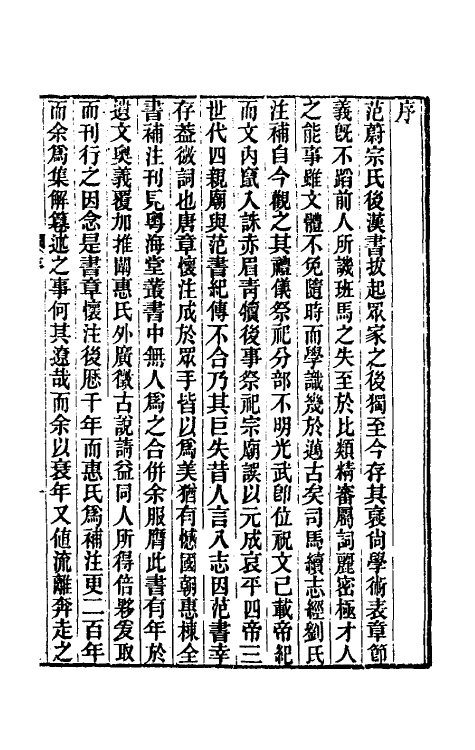 序
范蔚宗氏後漢書拔起眾家之後獨至今存其裦尙學術表章節
義旣不蹈前人所譏班馬之失至於比類精審屬詞麗密極才人
之能事雖文體不免隨時而學識幾於邁古矣司馬續志經劉氏
注補自今觀之其禮儀祭祀分部不明光武卽位祝文已載帝紀
而文內竄入誅赤眉靑犢後事祭祀宗廟誤以元成哀平四帝三
世代四親廟與范書紀傳不合乃其巨失昔人言八志因范書幸
存葢微詞也唐章懷注成於眾手皆以爲美猶有憾國朝惠棟全
書補注刊見粵海堂叢書中無人爲之合併余服膺此書有年於
遺文奧義覆加推闡惠氏外廣徵古說請益同人所得倍夥爰取
而刊行之因念是書章懷注後厯千年而惠氏爲補注更二百年
而余爲集解篹述之事何其遼哉而余以衰年又値流離奔走之
序